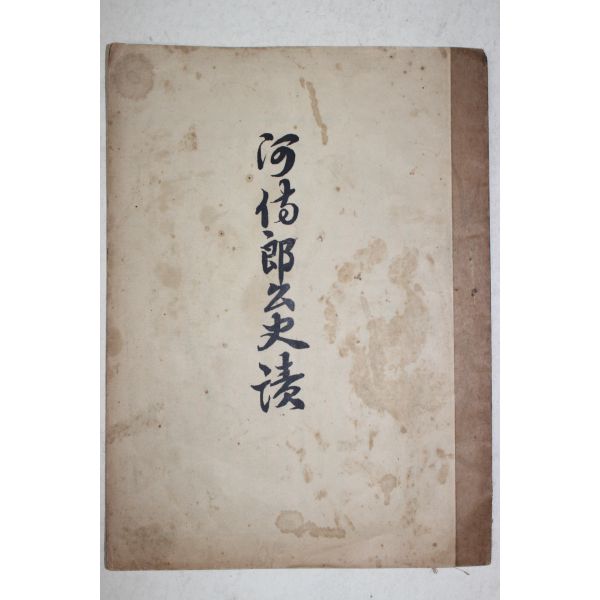 河侍郎公史蹟